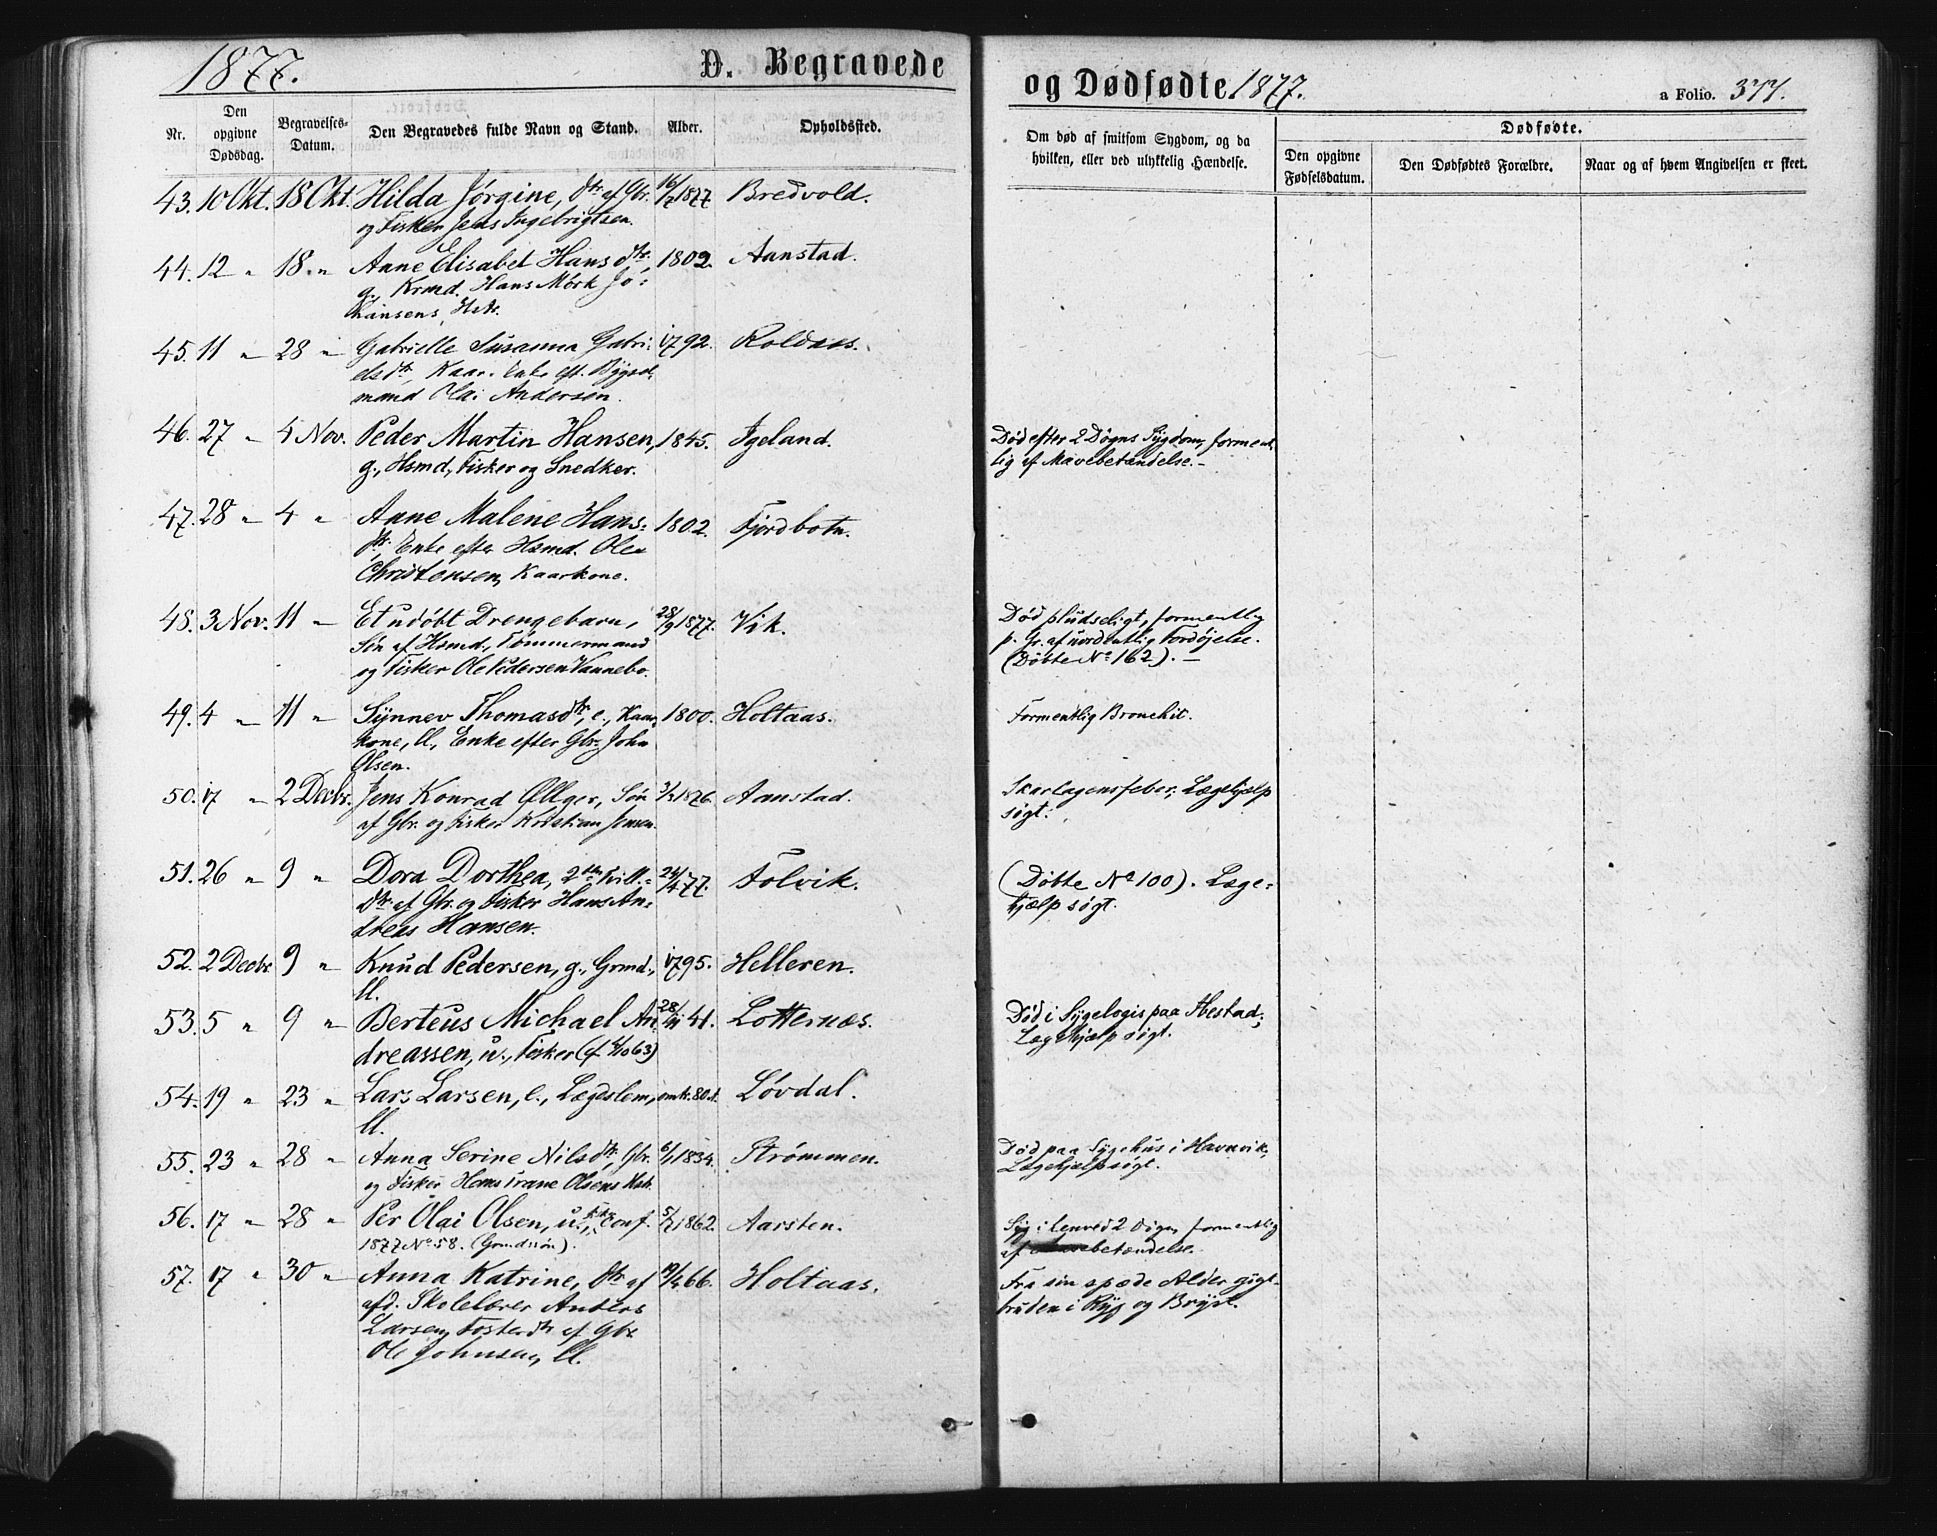 1877.
D. Begravede
og Dødfødte 1877.
a Folio. 377.
Nr.
Den opgivne Dødsdag.
Begravelses-Datum.
Den Begravedes fulde Navn og Stand.
Alder.
Opholdssted.
Om død af smitsom Sygdom, og da hvilken, eller ved ulykkelig Hændelse.
Dødfødte.
Den opgivne Fødselsdatum.
Den Dødfødtes Forældre.
Naar og af hvem Angivelsen er skeet.
43. 10 Okt. 18 Okt. Hilda Jørgine, Dtr af Gbr. 16/7 1877. Bredvold.
og Fisker Jens Ingebrigtsen.
44. 12 " 18 " Anne Elisabet Hansdtr. 1802. Aanstad.
g. Krmd. Hans Mørk Jo-
hansens Hstr.
45. 11 " 28 " Gabrielle Susanna Gabri- 1792. Roldaas.
elsdtr, Kaar. Enke eft. Bygsel-
mand Olai Andersen.
46. 27 " 4 Nov. Peder Martin Hansen, 1845. Igeland. Død efter 2 Døgns Sygdom, forment-
g., Hsmd, Fisker og Snedker. lig af Mavebetændelse.-
47. 28 " 4 " Anne Malene Hans- 1802. Fjordbotn.
dtr. Enke efter Hsmd. Ole
Christensen, Kaarkone.
48. 3 Nov. 11 " Et udøbt Drengebarn, 28/9 1877. Vik. Død pludseligt, formentlig
Søn af Hsmd, Tømmermand p. Gr. af uordentlig Fordøjelse.
og Fisker Ole Pedersen Vannebo. (Døbte No 162). -
49. 4 " 11 " Synnev Thomasdtr, e., Kaar- 1800. Holtaas. Formentlig Bronchit.
kone, ll., Enke efter Gbr. John
Olsen.
50. 17 " 2 Decbr. Jens Konrad Øllger, Søn 3/3 1876. Aanstad. Skarlagensfeber; Lægehjælp
af Gbr. og Fisker Kristian Jensen. søgt.
51. 26 " 9 " Dora Dorthea, 2den Tvill.- 24/4 77. Folvik. (Døbte No 100). Læge-
Dtr. af Gbr. og Fisker Hans An- hjælp søgt.
dreas Hansen.
52. 2 Decbr 9 " Knud Pedersen, g., Grmd., 1795. Helleren.
ll.
53. 5 " 9 " Berteus Michael An- 28/11 41. Lotternæs. Død i Sygelogis paa Hestad;
dreassen, u., Fisker (cf 4/10 63) Lægehjælp søgt.
54. 19 " 23 " Lars Larsen, e., Lægdslem, omkr. 80 A. Løvdal.
ll.
55. 23 " 28 " Anna Serine Nilsdtr, Gbr. 6/1 1834. Strømmen. Død paa Sygehus i Havnvik,
og Fisker Hans Trane Olsens Hstr. Lægehjælp søgt.
56. 17 " 28 " Per Olai Olsen, u., Fisker, conf. 5/7 1862. Aarsten. Syg i henved 2 Døgn, formentlig
1877 No 58. (Grmdssøn). af Mavebetændelse.
57. 17 " 30 " Anna Katrine, Dtr af 19/4 66. Holtaas. Fra sin spæde Alder gigt-
afd. Skolelærer Anders bruden i Ryg og Bryst.
Larsen, Fosterdtr af Gbr.
Ole Johnsen, ll.